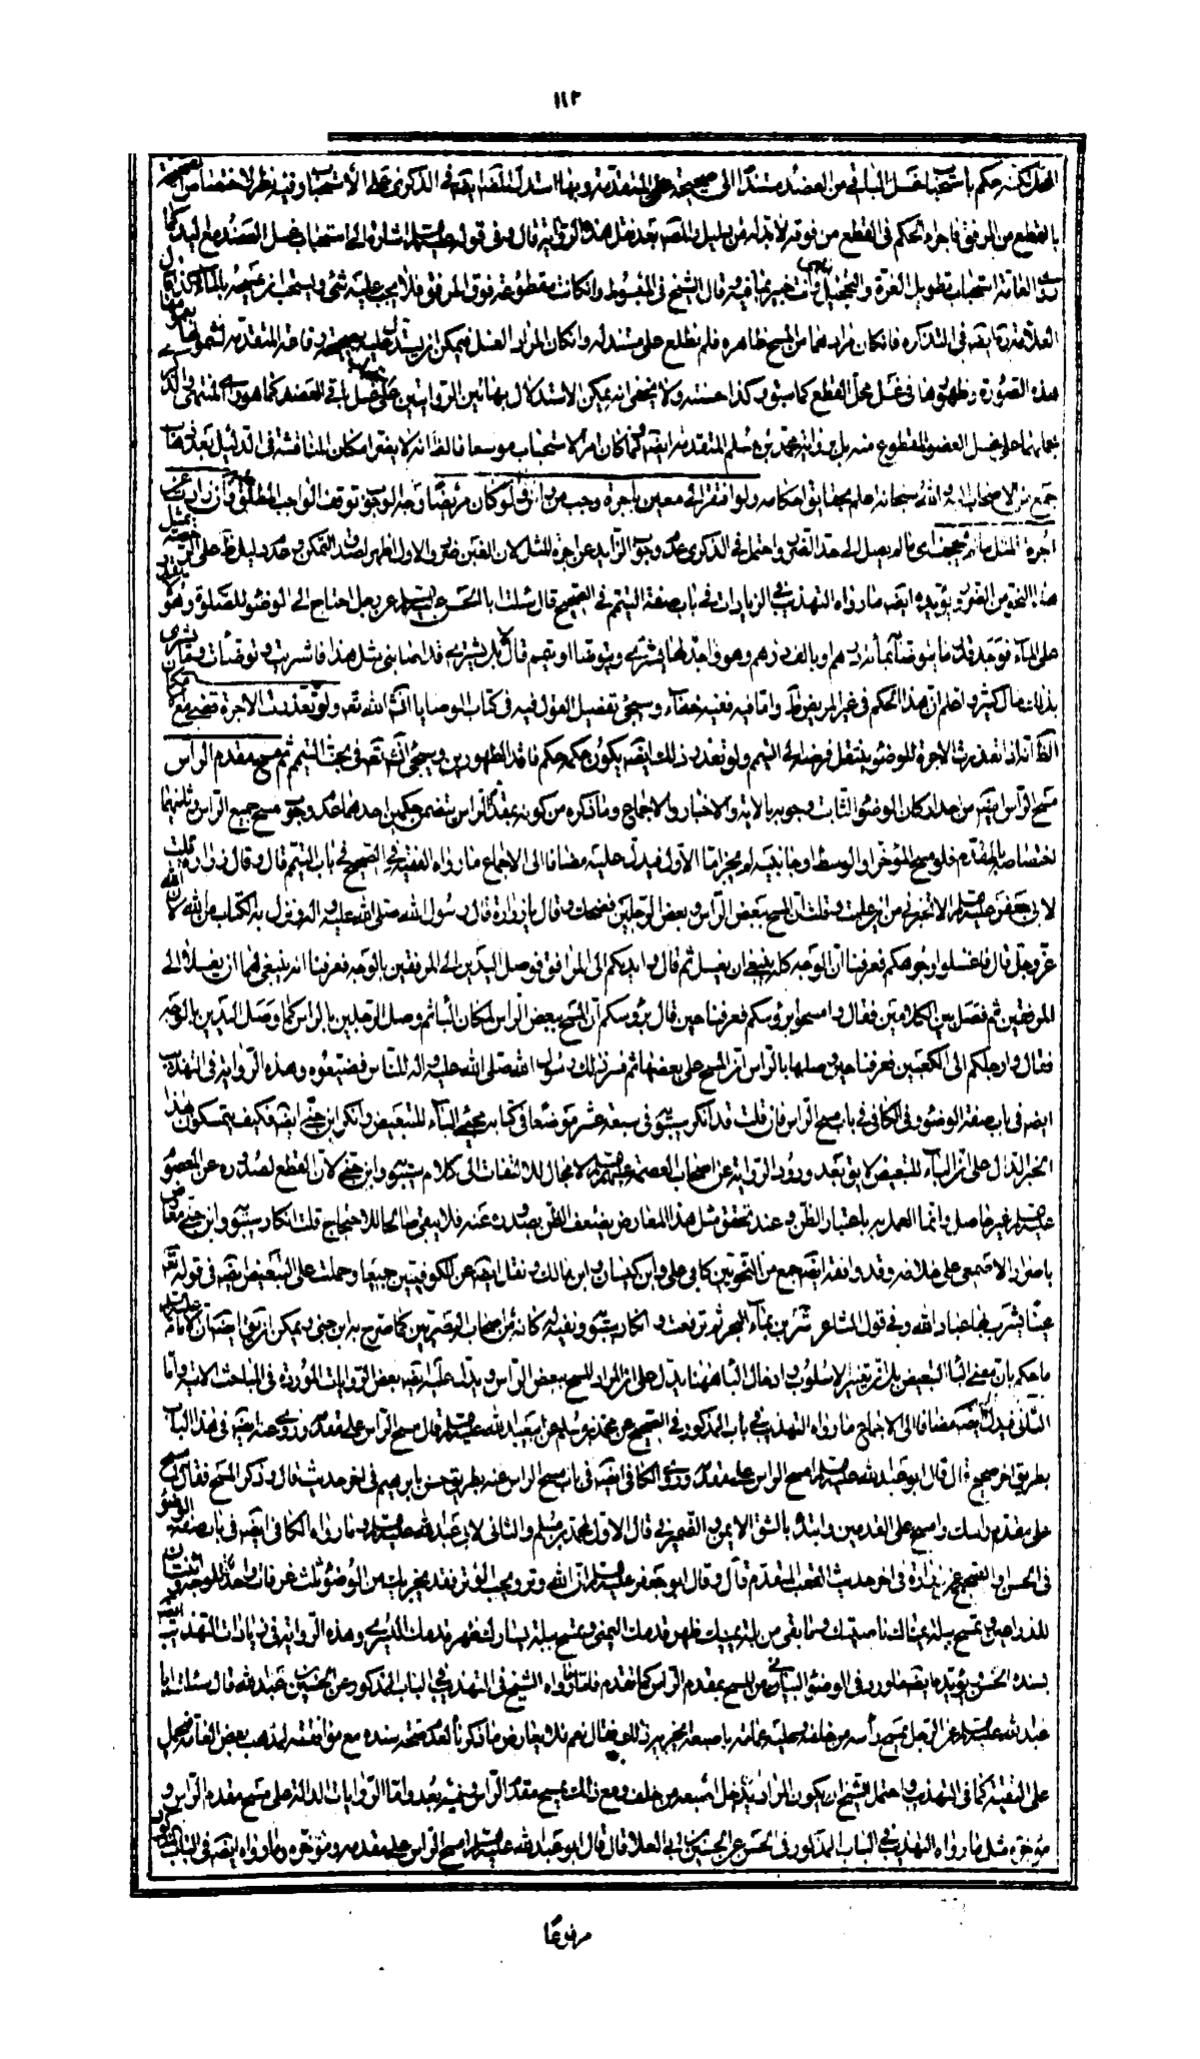 ١١٢
المحل لكنه حكم باستحباب غسل الباقي من العضد مستندا الى صحيحة علي المتقدمة وبها استدل ثقة ايضه في الذكرى على الاستحباب وفيه نظر لاختصاص
بالقطع من المرفق فاجراء الحكم في القطع من فوقه لابد له من دليل والمصه بعد نقل هذه الرواية قال وفي قوله اشارة الى استحباب غسل العضد مع اليد كما
العامة استحباب تطويل الغرة والتحجيل وانت خبير بما فيه وقال الشيخ في المبسوط وان كانت مقطوعة فوق المرفق فلا يجب عليه شئ ويستحب ان يمسحه بالماء وكذا قال
العلامة ايضه في التذكرة فان كان مرادهما من المسح ظاهره فلم نطلع على مستند له وان كان المراد الغسل فيمكن ان يستدل عليه بصحيحة رفاعة المتقدمة لشمولها
هذه الصورة وظهورها في غسل محل القطع كما سبق وكذا حسنته ولا يخفى انه يمكن الاستدلال بهاتين الروايتين على غسل باقي العضد كما هو
بحملهما على غسل العضو المقطوع منه بل برواية محمد بن مسلم المتقدمة ايضه لما كان امر الاستحباب موسعا فالظ انه لا يضر امكان المناقشة في الدليل بعد ذهاب
جمع من الاصحاب اليه والله سبحانه اعلم بحقايق احكامه ولو افتقر الى معين باجرة وجب من وان زادت عن
اجرة المثل ما لم يجحف اي ماله يصل الى حد الضرر واحتمل في الذكرى عدم وجوب الزايد عن اجرة المثل لان الغبن ضرر والاول اظهر لصدق التمكن وعدم دليل ظ على
هذا النحو من الضرر ويؤيده ايضه ما رواه التهذيب في الزيادات في باب صفة التيمم في الصحيح قال سئلت ابا الحسن عليه السلام عن رجل احتاج الى الوضوء للصلوة وهو لا يقدر
على الماء فوجد قدر ما يتوضأ به بمائة درهم او بالف درهم وهو واجد لها يشتري ويتوضأ او يتيمم قال لا بل يشتري قد اصابني مثل هذا فاشتريت وتوضأت وما يشترى
بذلك مال كثير واعلم ان هذا الحكم في غير المريض ظ واما فيه ففيه خفاء وسيجئ تفصيل القول فيه في كتاب الوصايا انشاء الله تعه ولو تعذرت الاجرة قضى مع
الظ انه اذا تعذرت الاجرة للوضوء ينتقل فرضه الى التيمم ولو تعذر ذلك ايضه يكون حكمه حكم فاقد الطهورين وسيجئ انشاء الله تعه في بحث التيمم ثم مسح مقدم الراس
مسح الراس ايضه من احد اركان الوضوء الثابت وجوبه بالاية والاخبار والاجماع وما ذكره من كونه بمقدم الراس يتضمن حكمين احدهما عدم وجوب مسح جميع الراس وثانيهما
اختصاصه بالمقدم فلو مسح المؤخر او الوسط او جانبيه لم يجز اما الاول فيدل عليه مضافا الى الاجماع ما رواه الفقيه في الصحيح في باب التيمم قال وقال زرارة قلت
لابي جعفر عليه السلام الا تخبرني من اين علمت وقلت ان المسح ببعض الراس وبعض الرجلين فضحك وقال يا زرارة قال رسول الله صلى الله عليه واله ونزل به الكتاب من الله لان الله
عز وجل قال فاغسلوا وجوهكم فعرفنا ان الوجه كله ينبغي ان يغسل ثم قال وايديكم الى المرافق فوصل اليدين الى المرفقين بالوجه فعرفنا انه ينبغي لهما ان يغسلا الى
المرفقين ثم فصل بين الكلامين فقال وامسحوا برؤسكم فعرفنا حين قال برؤسكم ان المسح ببعض الراس لمكان الباء ثم وصل الرجلين بالراس كما وصل اليدين بالوجه
فقال وارجلكم الى الكعبين فعرفنا حين وصلها بالراس ان المسح على بعضها ثم فسر ذلك رسول الله صلى الله عليه واله للناس فضيعوه وهذه الرواية في التهذيب
ايضه في باب صفة الوضوء وفي الكافي في باب مسح الراس فان قلت قد انكر سيبويه في سبعة عشر موضعا في كتابه مجئ الباء للتبعيض وانكر ابن جني ايضه فكيف يتمسكون بهذا
الخبر الدال على ان الباء للتبعيض لا يق بعد ورود الرواية عن اصحاب العصمة عليهم السلام لا مجال للالتفات الى كلام سيبويه وابن جني لان القطع بصدوره عن المعصوم
عليه السلام غير حاصل وانما العمل به باعتبار الظن وعند تحقق مثل هذا المعارض يضعف الظن بصدوره عنه فلا يبقى صالحا للاحتجاج قلت انكار سيبويه وابن جني معارض
باصرار الاصمعي على خلافه وقد وافقه ايضه جمع من النحويين كابي علي وابن كيسان وابن مالك ونقل ايضه عن الكوفيين جميعا وحملت على التبعيض ايضه في قوله تعه
عينا يشرب بها عباد الله وفي قول الشاعر شربن بماء البحر ثم ترفعت
ما حكم بان معنى الباء التبعيض بل ان تغيير الاسلوب وادخال الباء ههنا يدل على ان المراد المسح ببعض الراس ويدل عليه ايضه بعض الروايات الموردة في المباحث الاتية واما
الثاني فيدل عليه ايضه مضافا الى الاجماع ما رواه التهذيب في باب المذكور في الصحيح عن محمد بن مسلم عن ابي عبد الله عليه السلام قال مسح الراس على مقدمه وروى عنه ايضه في هذا الباب
بطريق اخر صحيح قال قال ابو عبد الله عليه السلام امسح الراس على مقدمه وروى الكافي ايضه في باب مسح الراس عنه بطريق حسن بابرهيم في اخر حديث قال وذكر المسح فقال امسح
على مقدم راسك وامسح على القدمين وابتدأ بالشق الايمن والضمير في قال الاول لمحمد بن مسلم والثاني لابي عبد الله عليه السلام وما رواه الكافي ايضه في باب صفة الوضوء
في الحسن والصحيح عن زرارة في اخر حديث القعب المتقدم قال وقال ابو جعفر عليه السلام ان الله وتر ويحب الوتر فقد يجزيك من الوضوء ثلث غرفات واحدة للوجه واثنتان
للذراعين وتمسح ببلة يمناك ناصيتك وما بقي من بلة يمينك ظهر قدمك اليمنى وتمسح ببلة يسارك ظهر قدمك اليسرى وهذه الرواية في زيادات التهذيب ايضه
بسنده الحسن ويؤيده ايضه ما ورد في الوضوء البياني من المسح بمقدم الراس كما تقدم فاما ما رواه الشيخ في التهذيب في الباب المذكور عن الحسين بن عبد الله قال سئلت ابا
عبد الله عليه السلام عن الرجل يمسح رأسه من خلفه وعليه عمامة باصبعه ايجزيه ذلك فقال نعم فلا يعارض ما ذكرنا لعدم صحة سنده مع موافقته لمذهب بعض العامة فيحمل
على التقية كما في التهذيب واحتمل الشيخ ان يكون المراد يدخل اصبعه من خلف ومع ذلك يمسح مقدم الراس وفيه بعد واما الروايات الدالة على مسح مقدم الراس و
مؤخره مثل ما رواه التهذيب في الباب المذكور في الحسن عن الحسين بن ابي العلا قال قال ابو عبد الله عليه السلام امسح الراس على مقدمه ومؤخره وما رواه ايضه في الباب
مرفوعا